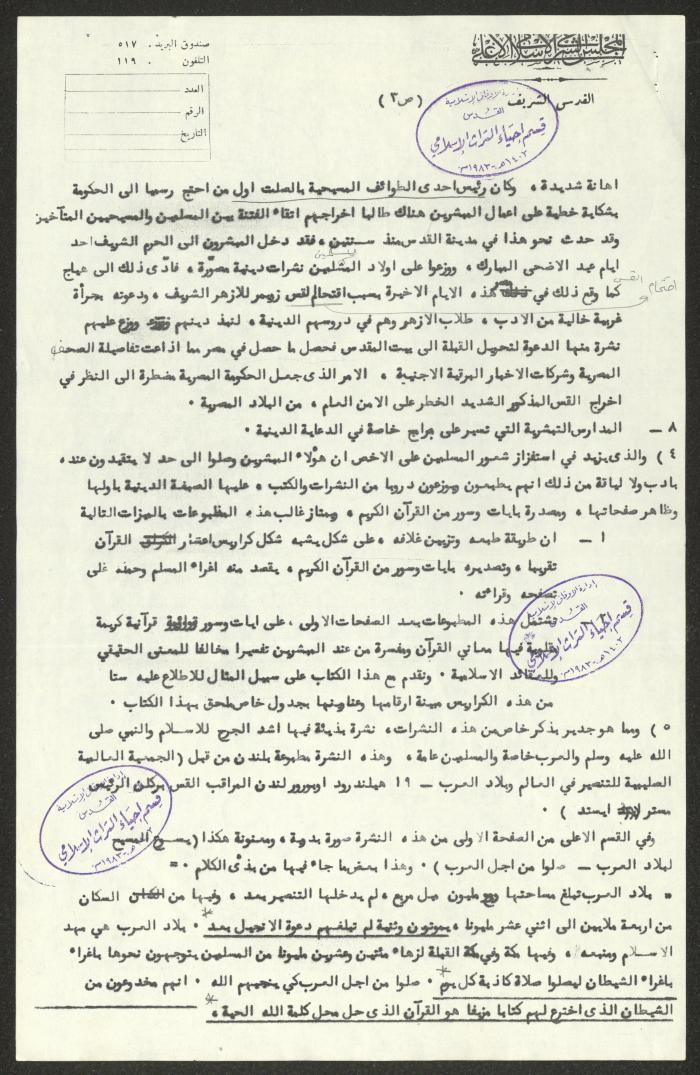 المجلس الشرعي الاسلامي الاعلى
صندوق البريد . ٥١٧
التلفون . ١١٩
العدد
الرقم
التاريخ
القدس الشريف (ص ٣)
ادارة الاوقاف الاسلامية
القدس
قسم إحياء التراث الإسلامي
١٤٠٣هـ-١٩٨٣م
اهانة شديدة ، وكان رئيس احدى الطوائف المسيحية بالصلت اول من احتج رسميا الى الحكومة
بشكاية خطية على اعمال المبشرين هناك طالبا اخراجهم اتقاء الفتنة بين المسلمين والمسيحيين المتآخين
وقد حدث نحو هذا في مدينة القدس منذ سنتين ، فقد دخل المبشرون الى الحرم الشريف احد
ايام عيد الاضحى المبارك ، ووزعوا على اولاد المسلمين نشرات دينية مصورة ، فادى ذلك الى هياج
كما وقع ذلك في مصر هذه الايام الاخيرة بسبب اقتحام القس زويمر للازهر الشريف ، ودعوته بجرأة
اقتحام القس
غريبة خالية من الادب ، طلاب الازهر وهم في دروسهم الدينية ، لنبذ دينهم ووزع عليهم
نشرة منها الدعوة لتحويل القبلة الى بيت المقدس فحصل ما حصل في مصر مما اذاعت تفاصيلة الصحف
المصرية وشركات الاخبار البرقية الاجنبية ، الامر الذى جعل الحكومة المصرية مضطرة الى النظر في
اخراج القس المذكور الشديد الخطر على الامن العام ، من البلاد المصرية .
٨ – المدارس التبشرية التي تسير على برامج خاصة في الدعاية الدينية .
٤ ) والذى يزيد في استفزاز شعور المسلمين على الاخص ان هؤلاء المبشرين وصلوا الى حد لا يتقيدون عنده
بادب ولا لياقة من ذلك انهم يطبعون ويوزعون دروبا من النشرات والكتب ، عليها الصبغة الدينية باولها
وظاهر صفحاتها ، ومصدرة بايات وسور من القرآن الكريم ، ويمتاز غالب هذه المطبوعات بالميزات التالية
١ – ان طريقة طبعه وتزيين غلافه ، على شكل يشبه شكل كراريس اعشار القرآن
تقريبا ، وتصديره بايات وسور من القرآن الكريم ، يقصد منه اغراء المسلم وحمله على
تصفحه وقراءته .
٢ – تشتمل هذه المطبوعات بعد الصفحات الاولى ، على ايات وسور قرآنية كريمة
مقلوبة فيها معاني القرآن ومفسرة من عند المبشرين تفسيرا مخالفا للمعنى الحقيقي
وللعقائد الاسلامية . ونقدم مع هذا الكتاب على سبيل المثال للاطلاع عليه ستا
من هذه الكراريس مبينة ارقامها وعناوينها بجدول خاص ملحق بهذا الكتاب .
ادارة الاوقاف الاسلامية
القدس
قسم إحياء التراث الإسلامي
١٤٠٣هـ-١٩٨٣م
٥ ) ومما هو جدير بذكر خاص من هذه النشرات ، نشرة بذيئة فيها اشد الجرح للاسلام والنبي صلى
الله عليه وسلم والعرب خاصة والمسلمين عامة ، وهذه النشرة مطبوعة بلندن من قبل (الجمعية العالمية
الصليبية للتنصير في العالم وبلاد العرب – ١٩ هيلندرود اوبورور لندن المراقب القس بركلن الرئيسة
مستر ايستد ) .
ادارة الاوقاف الاسلامية
القدس
قسم إحياء التراث الإسلامي
١٤٠٣هـ-١٩٨٣م
وفي القسم الاعلى من الصفحة الاولى من هذه النشرة صورة بدوية ، ومعنونة هكذا (يسوع المسيح
لبلاد العرب – صلوا من اجل العرب ) . وهذا بعض ما جاء فيها من بذى الكلام .=
" بلاد العرب تبلغ مساحتها مليون ميل مربع ، لم يدخلها التنصير بعد ، وفيها من السكان
من اربعة ملايين الى اثني عشر مليونا ، يموتون وثنية لم تبلغهم دعوة الانجيل بعد * . بلاد العرب هي مهد
الاسلام ومنبعه ، وفيها مكة وفي مكة القبلة لزهاء مئتين وعشرين مليونا من المسلمين يتوجهون نحوها باغراء
باغراء الشيطان ليصلوا صلاة كاذبة كل يوم * . صلوا من اجل العرب كي ينجيهم الله . انهم مخدوعون من
الشيطان الذى اخترع لهم كتابا مزيفا هو القرآن الذى حل محل كلمة الله الحية ، *